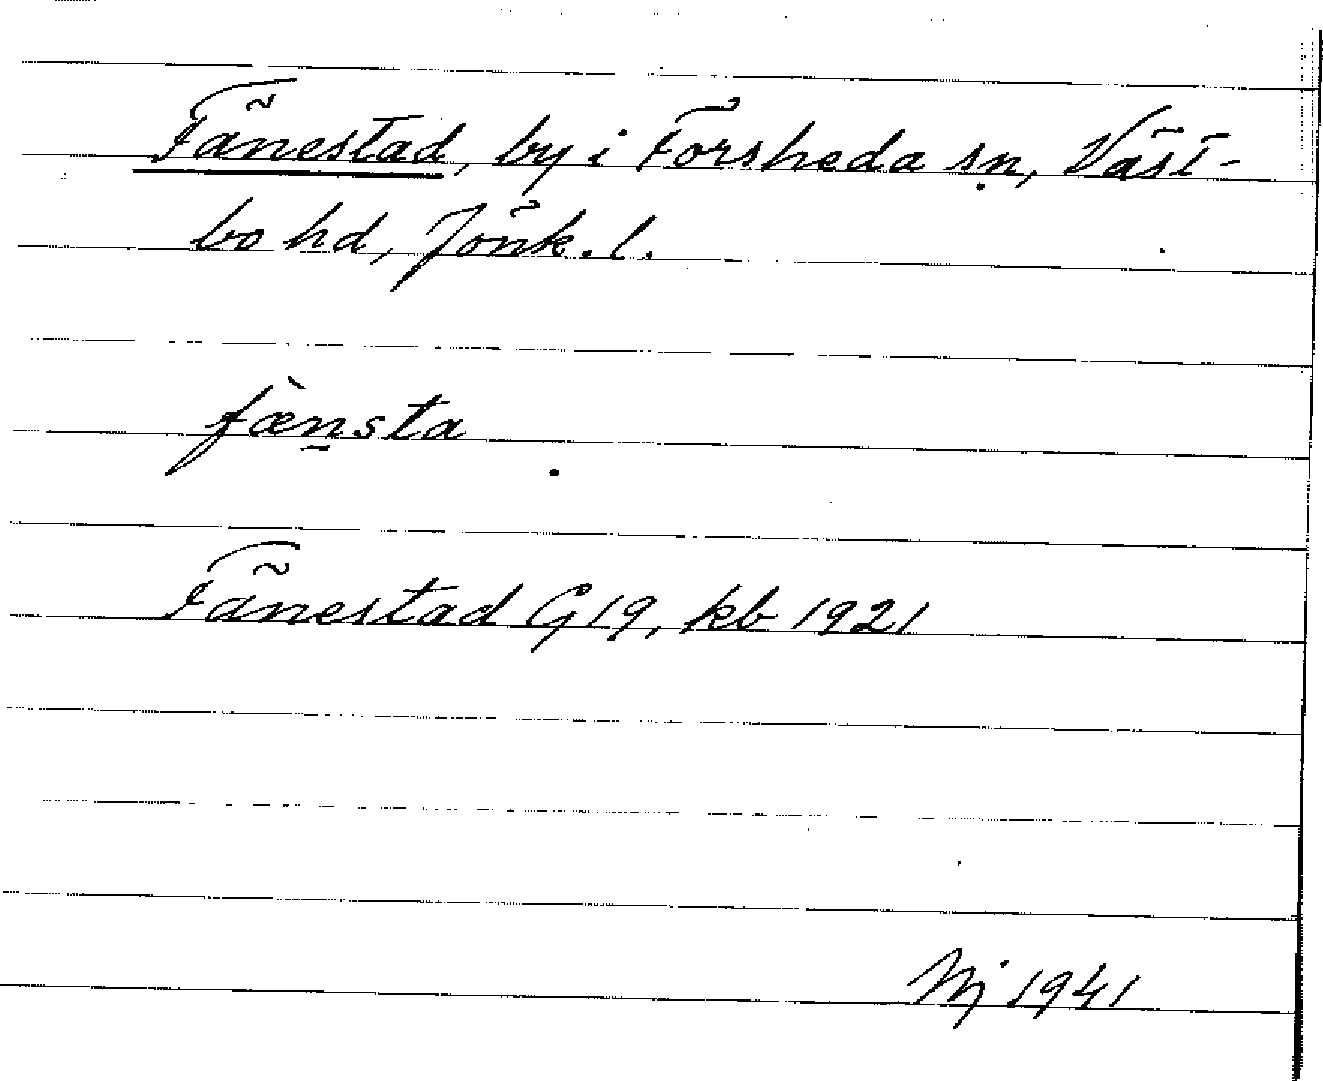 Fänestad, by i Forsheda sn, Väst-
bo hd, Jönk. l.
fæ̀n̲sta
Fänestad G 19, kb 1921
Nj 1941